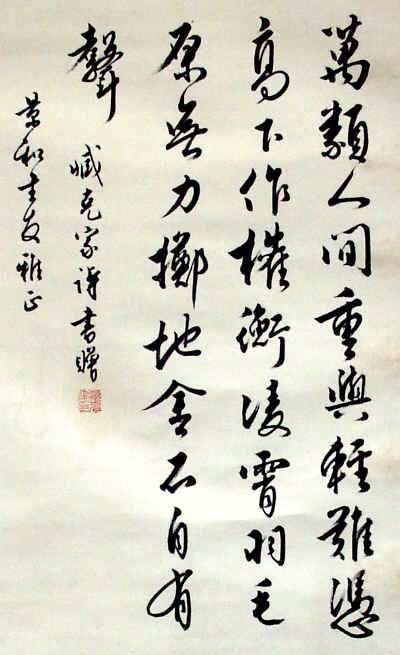 萬類人间重與輕難憑
高下作權衡凌霄羽毛
原無力擲地金石自有
聲
臧克家詩書贈
景和書友雅正